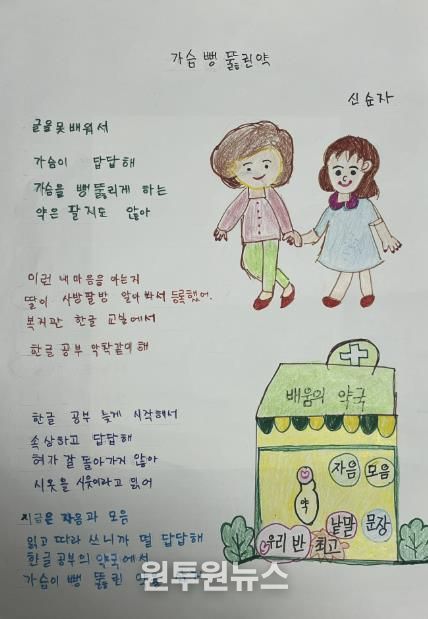 가슴 뻥 뚫린약
신순자
글을 못 배워서
가슴이 답답해
가슴을 뻥 뚫리게 하는
약은 팔지도 않아
이런 내 마음을 아는지
딸이 사방팔방 알아봐서 등록했어.
복지관 한글 교실에서
한글 공부 악착같이 해
한글 공부 늦게 시작해서
속상하고 답답해
혀가 잘 돌아가지 않아
시옷을 시읏이라고 읽어
지금은 자음과 모음
읽고 따라 쓰니까 덜 답답해
한글 공부의 약국에서
가슴이 뻥 뚫린
배움의 약국
자음 모음
약
낱말 문장
우리 반 최고
원투원뉴스